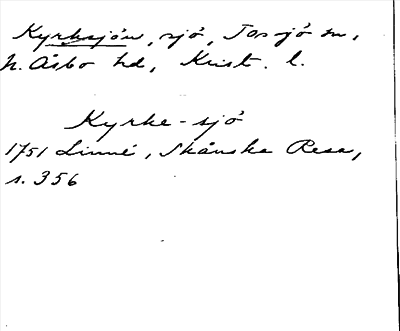 Kyrksjön, sjö, Tosjö sn,
N. Åsbo hd, Krist. l.
Kyrke-sjö
1751 Linné, Skånska Resa,
s. 356